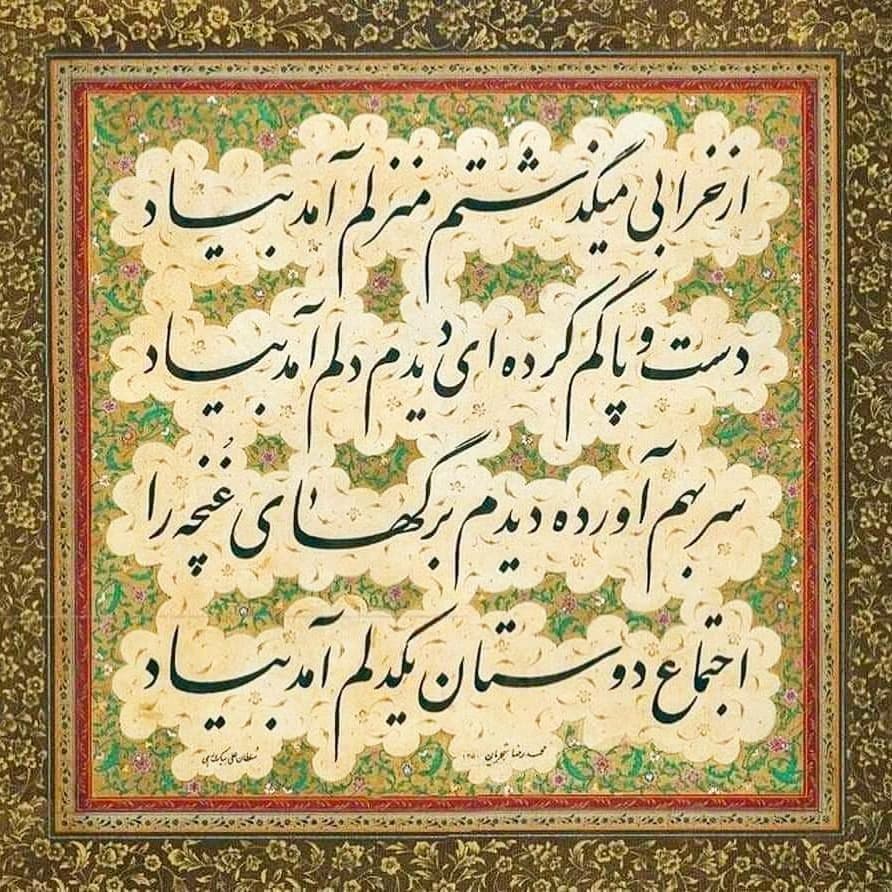 از خرابی میگذشتم منزلم آمد بیاد
دست و پا گم کرده ای دیدم دلم آمد بیاد
سر بهم آورده دیدم برگهای غُنچه را
اجتماع دوستان یکدلم آمد بیاد
محمد رضا شجریان
سلطان علی